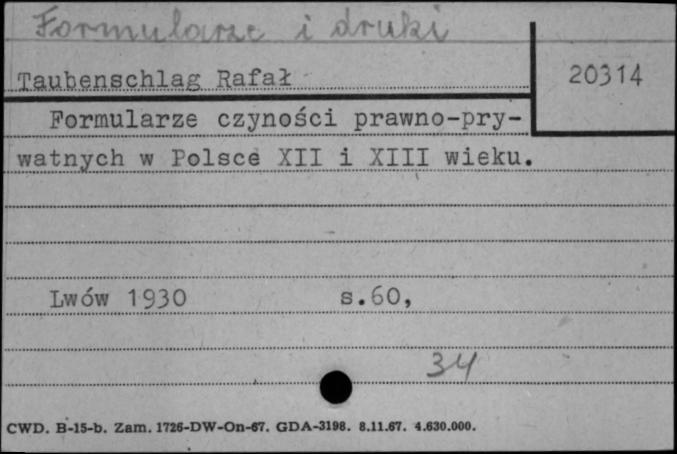 Formularze i druki
Taubenschlag Rafał
20314
Formularze czyności prawno-pry-
watnych w Polsce XII i XIII wieku.
Lwów 1930 s.60,
34
CWD. B-15-b. Zam. 1726-DW-On-67. GDA-3198. 8.11.67. 4.630.000.